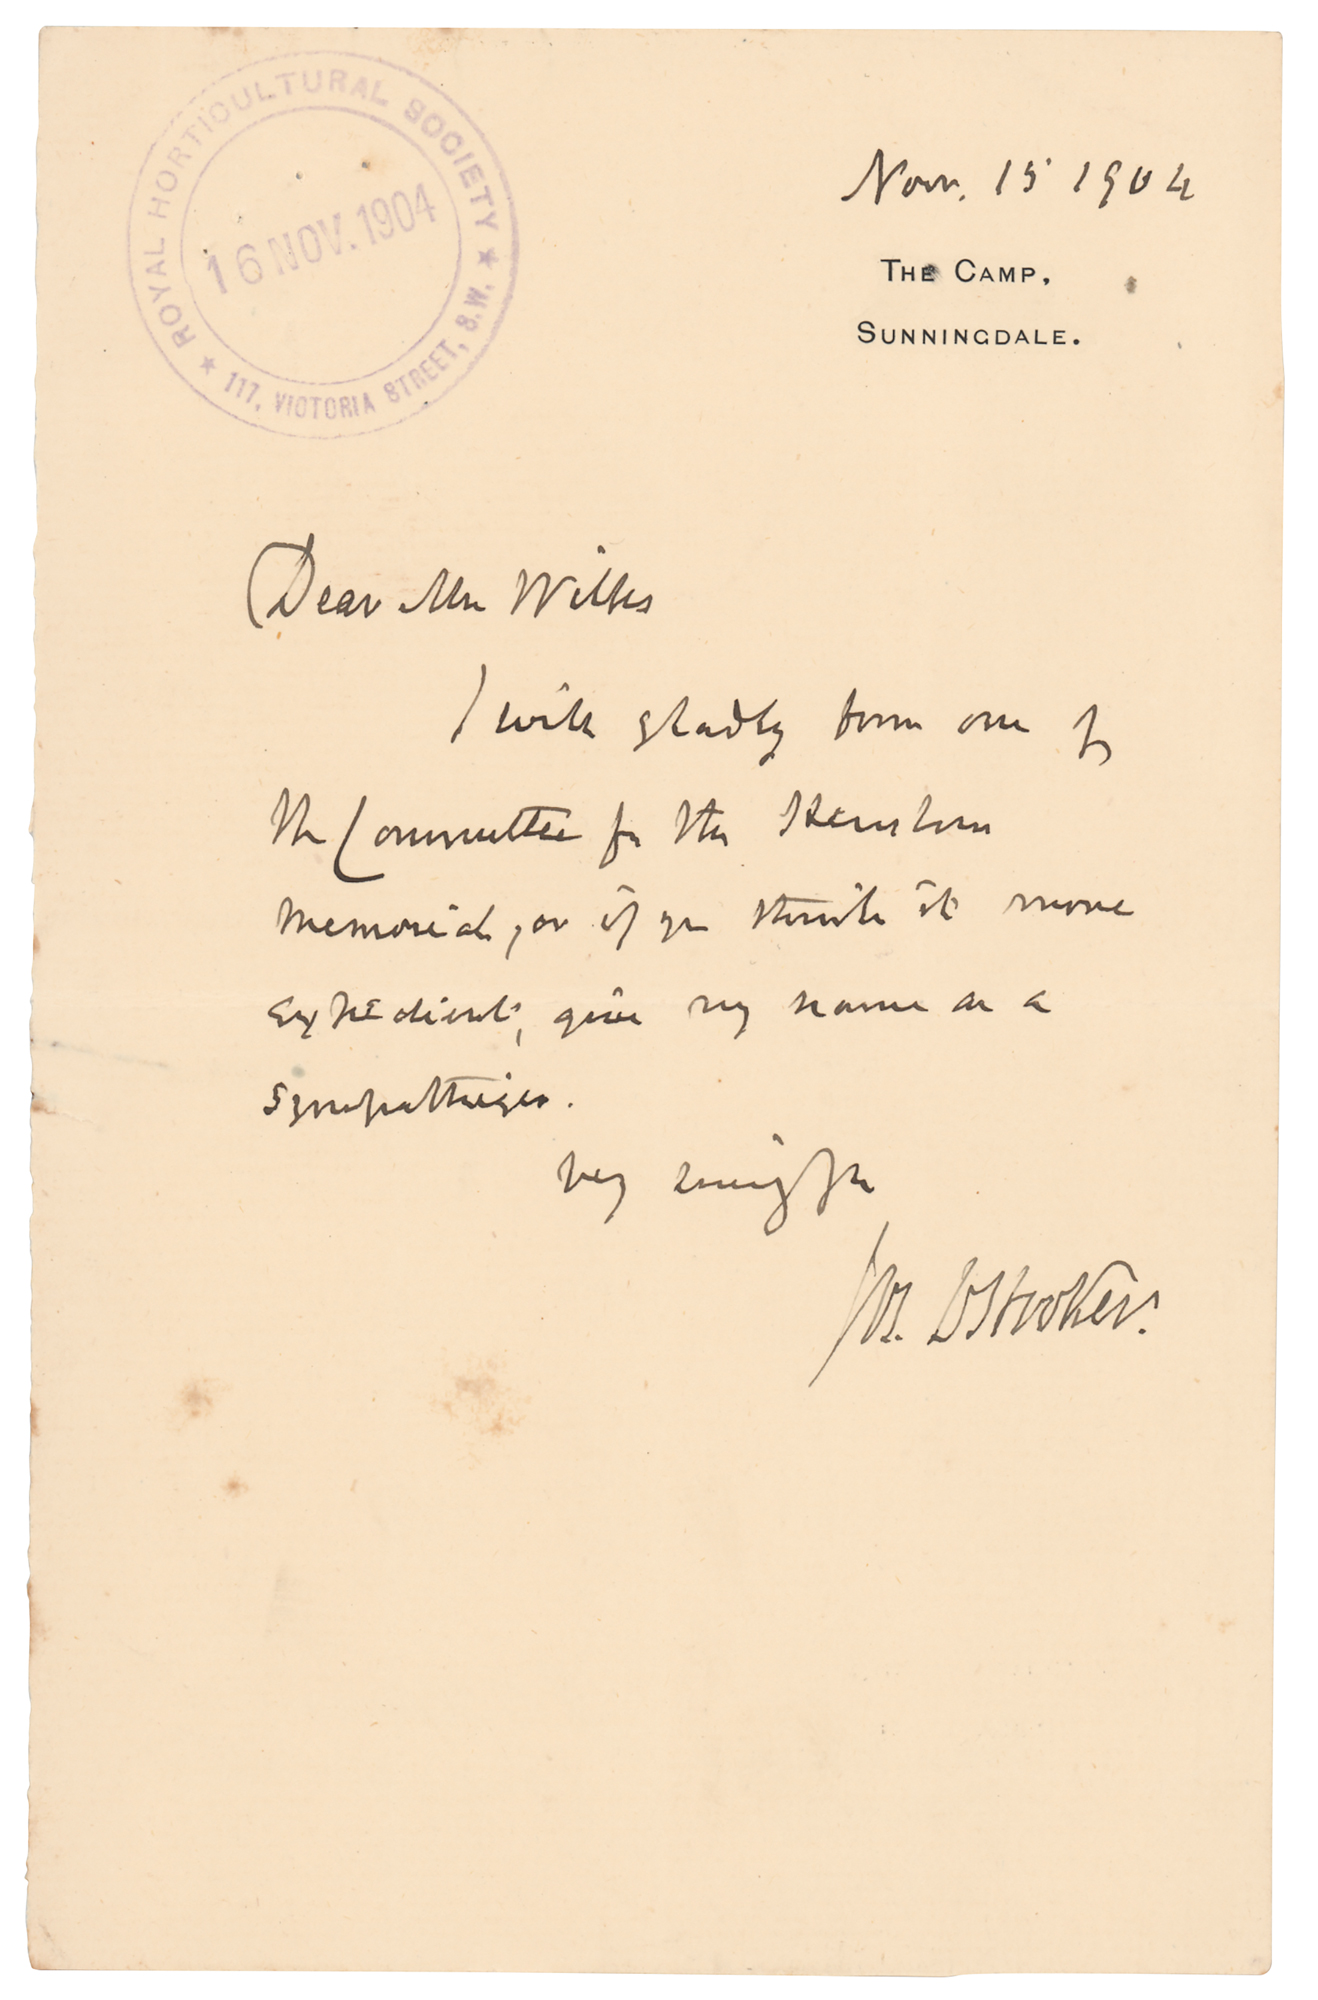 ROYAL HORTICULTURAL SOCIETY
16 NOV. 1904
117, VICTORIA STREET, S.W.
Nov. 15 1904
THE CAMP,
SUNNINGDALE.
Dear Mr Wilks
I will gladly form one of
the Committee for the
Memorial, or if you think it more
expedient, give my name as a
sympathizer.
Very sincerely yrs
Jos. D Hooker.